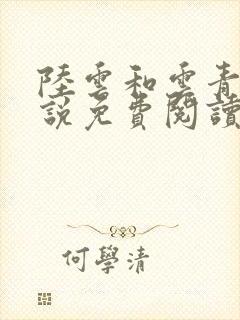 陸雲和雲青
說免費閱讀
何學清